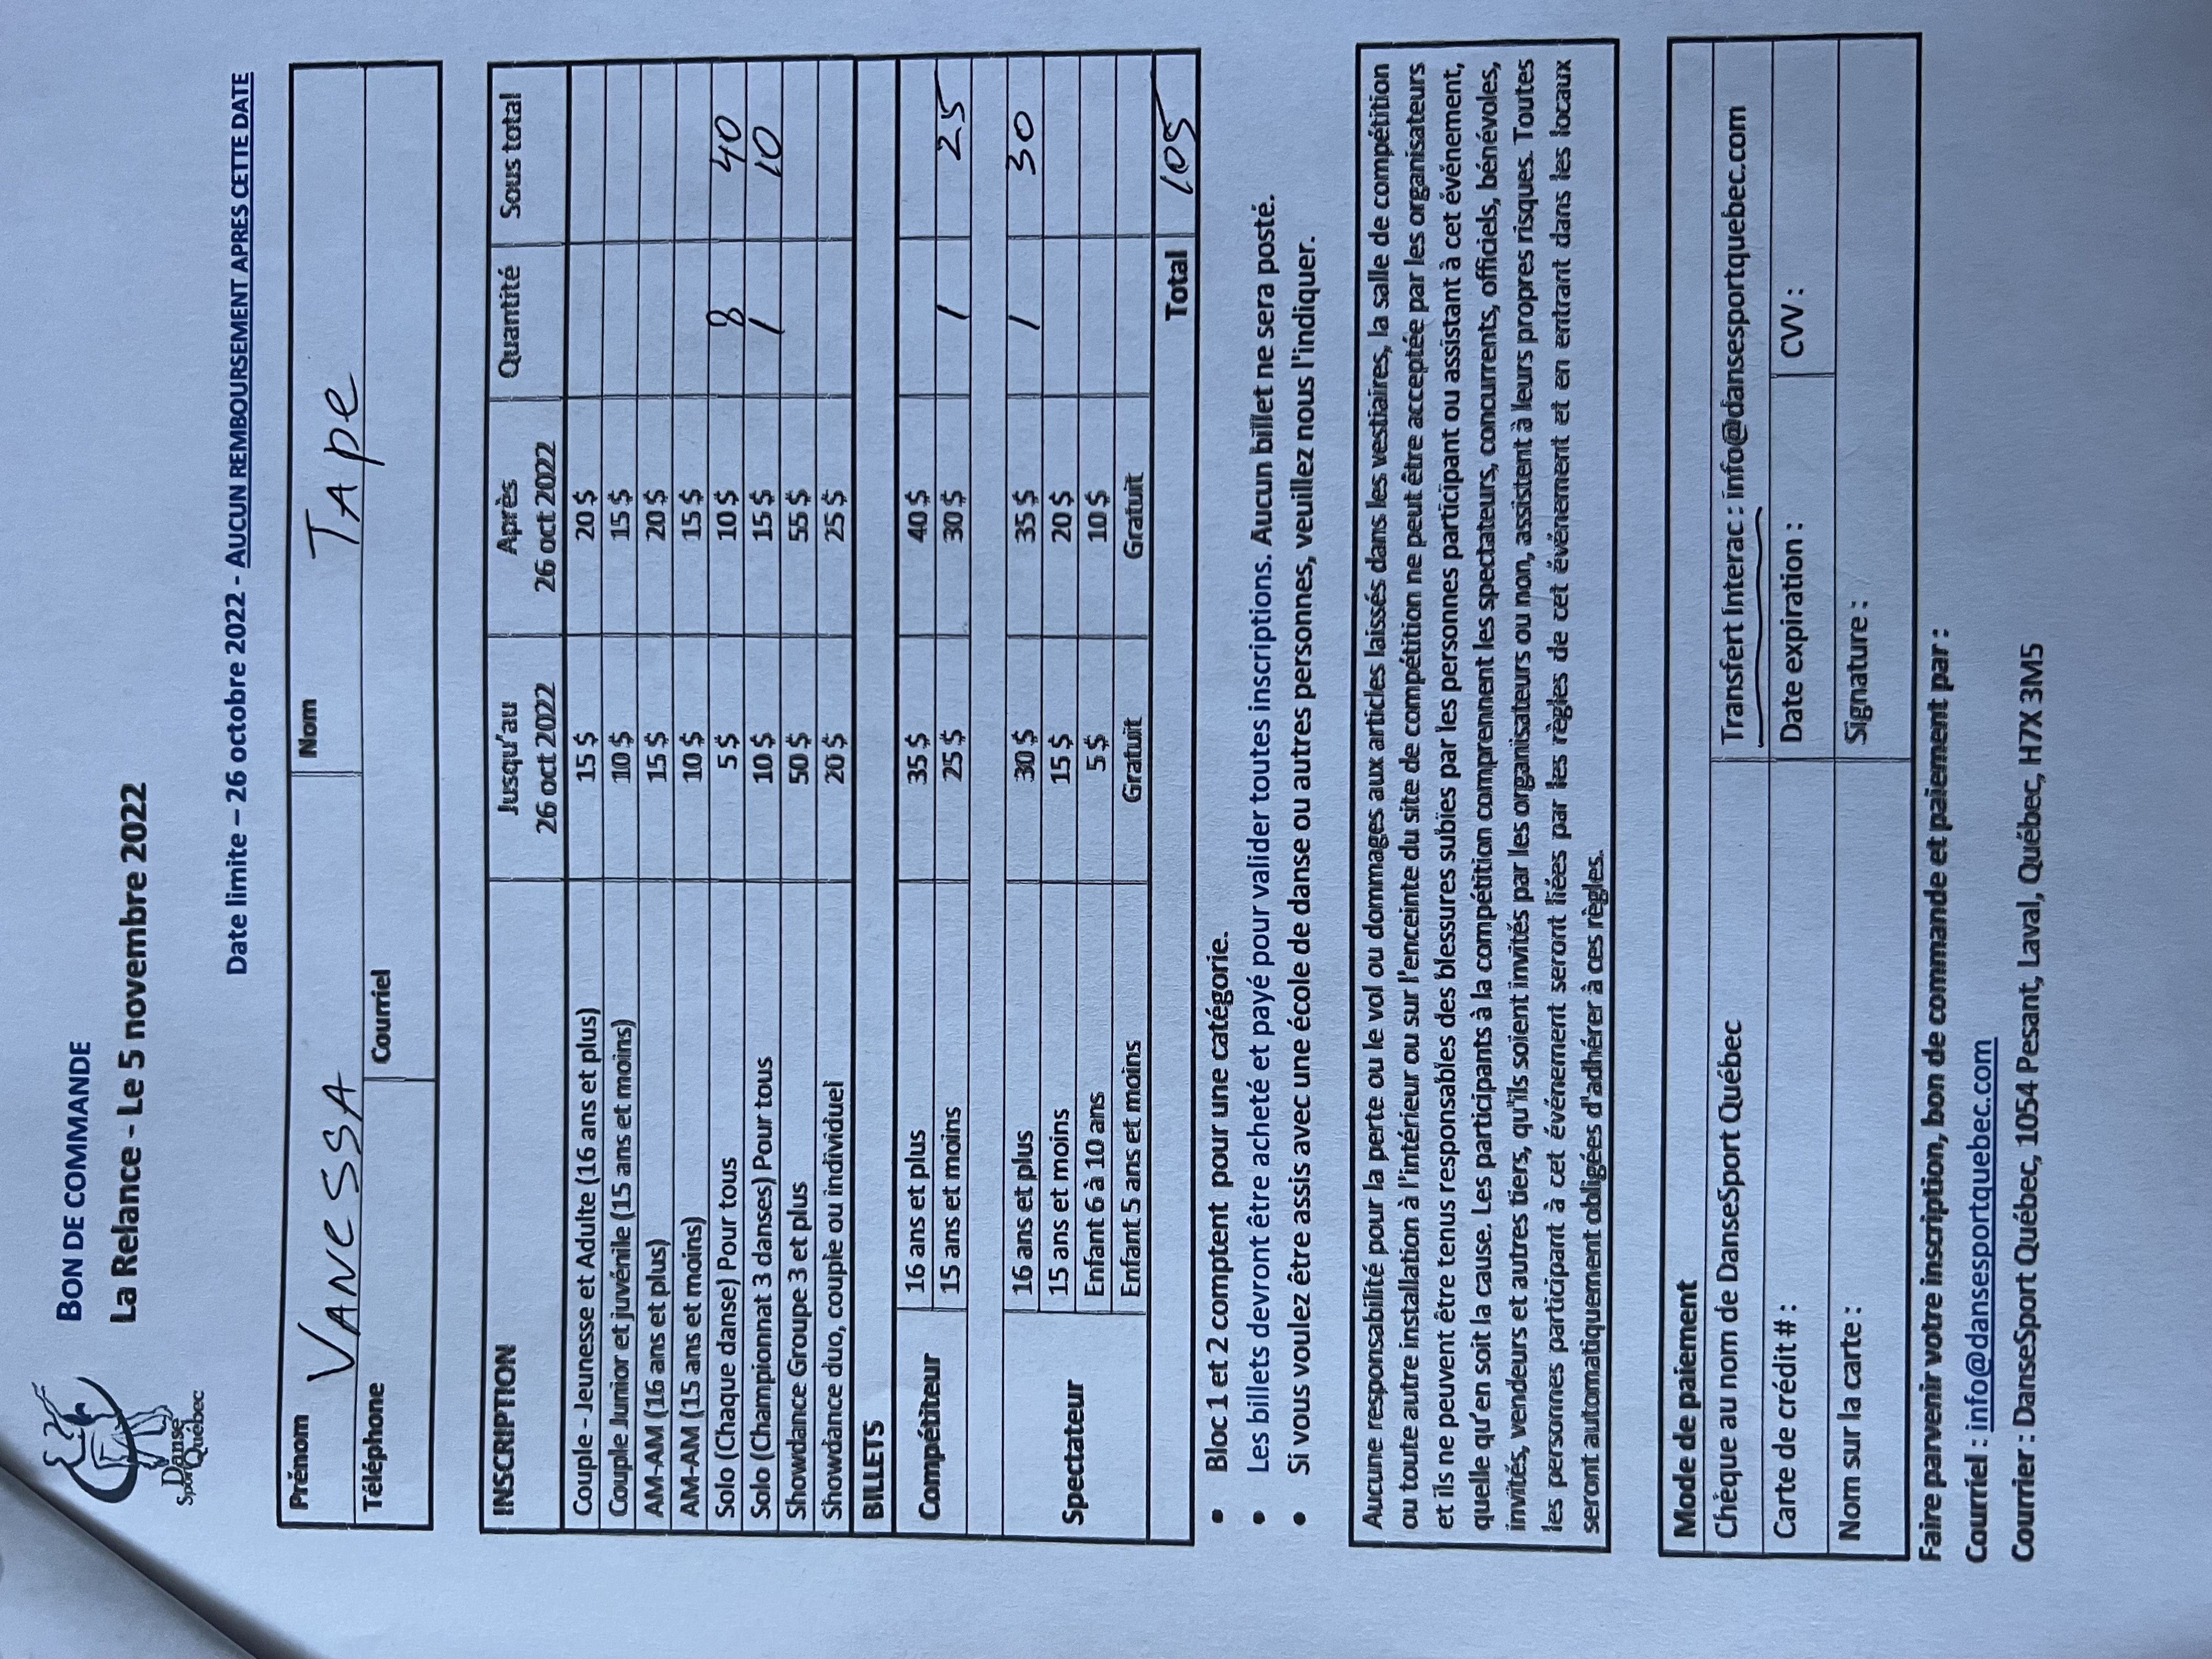 BON DE COMMANDE
La Relance - Le 5 novembre 2022
Danse
Sport Québec
Date limite – 26 octobre 2022 - AUCUN REMBOURSEMENT APRES CETTE DATE
Prénom VANESSA Nom TApe
Téléphone Courriel
INSCRIPTION Jusqu'au 26 oct 2022 Après 26 oct 2022 Quantité Sous total
Couple - Jeunesse et Adulte (16 ans et plus) 15 $ 20 $
Couple Junior et juvénile (15 ans et moins) 10 $ 15 $
AM-AM (16 ans et plus) 15 $ 20 $
AM-AM (15 ans et moins) 10 $ 15 $
Solo (Chaque danse) Pour tous 5 $ 10 $ 8 40
Solo (Championnat 3 danses) Pour tous 10 $ 15 $ 1 10
Showdance Groupe 3 et plus 50 $ 55 $
Showdance duo, couple ou individuel 20 $ 25 $
BILLETS
Compétiteur
16 ans et plus 35 $ 40 $
15 ans et moins 25 $ 30 $ 1 25
Spectateur
16 ans et plus 30 $ 35 $ 1 30
15 ans et moins 15 $ 20 $
Enfant 6 à 10 ans 5 $ 10 $
Enfant 5 ans et moins Gratuit Gratuit
Total 105
• Bloc 1 et 2 comptent pour une catégorie.
• Les billets devront être acheté et payé pour valider toutes inscriptions. Aucun billet ne sera posté.
• Si vous voulez être assis avec une école de danse ou autres personnes, veuillez nous l'indiquer.
Aucune responsabilité pour la perte ou le vol ou dommages aux articles laissés dans les vestiaires, la salle de compétition
ou toute autre installation à l'intérieur ou sur l'enceinte du site de compétition ne peut être acceptée par les organisateurs
et ils ne peuvent être tenus responsables des blessures subies par les personnes participant ou assistant à cet événement,
quelle qu'en soit la cause. Les participants à la compétition comprennent les spectateurs, concurrents, officiels, bénévoles,
invités, vendeurs et autres tiers, qu'ils soient invités par les organisateurs ou non, assistent à leurs propres risques. Toutes
les personnes participant à cet événement seront liées par les règles de cet événement et en entrant dans les locaux
seront automatiquement obligées d'adhérer à ces règles.
Mode de paiement
Chèque au nom de DanseSport Québec Transfert Interac : info@dansesportquebec.com
Carte de crédit # : Date expiration : CVV :
Nom sur la carte : Signature :
Faire parvenir votre inscription, bon de commande et paiement par :
Courriel : info@dansesportquebec.com
Courrier : DanseSport Québec, 1054 Pesant, Laval, Québec, H7X 3M5